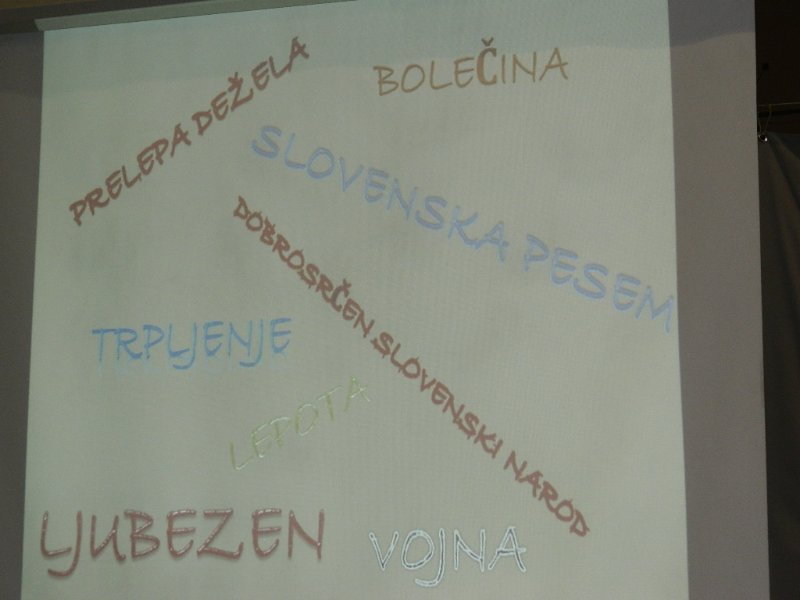 PRELEPA DEŽELA
BOLEČINA
SLOVENSKA PESEM
DOBROSRČEN SLOVENSKI NAROD
TRPLJENJE
LEPOTA
LJUBEZEN
VOJNA